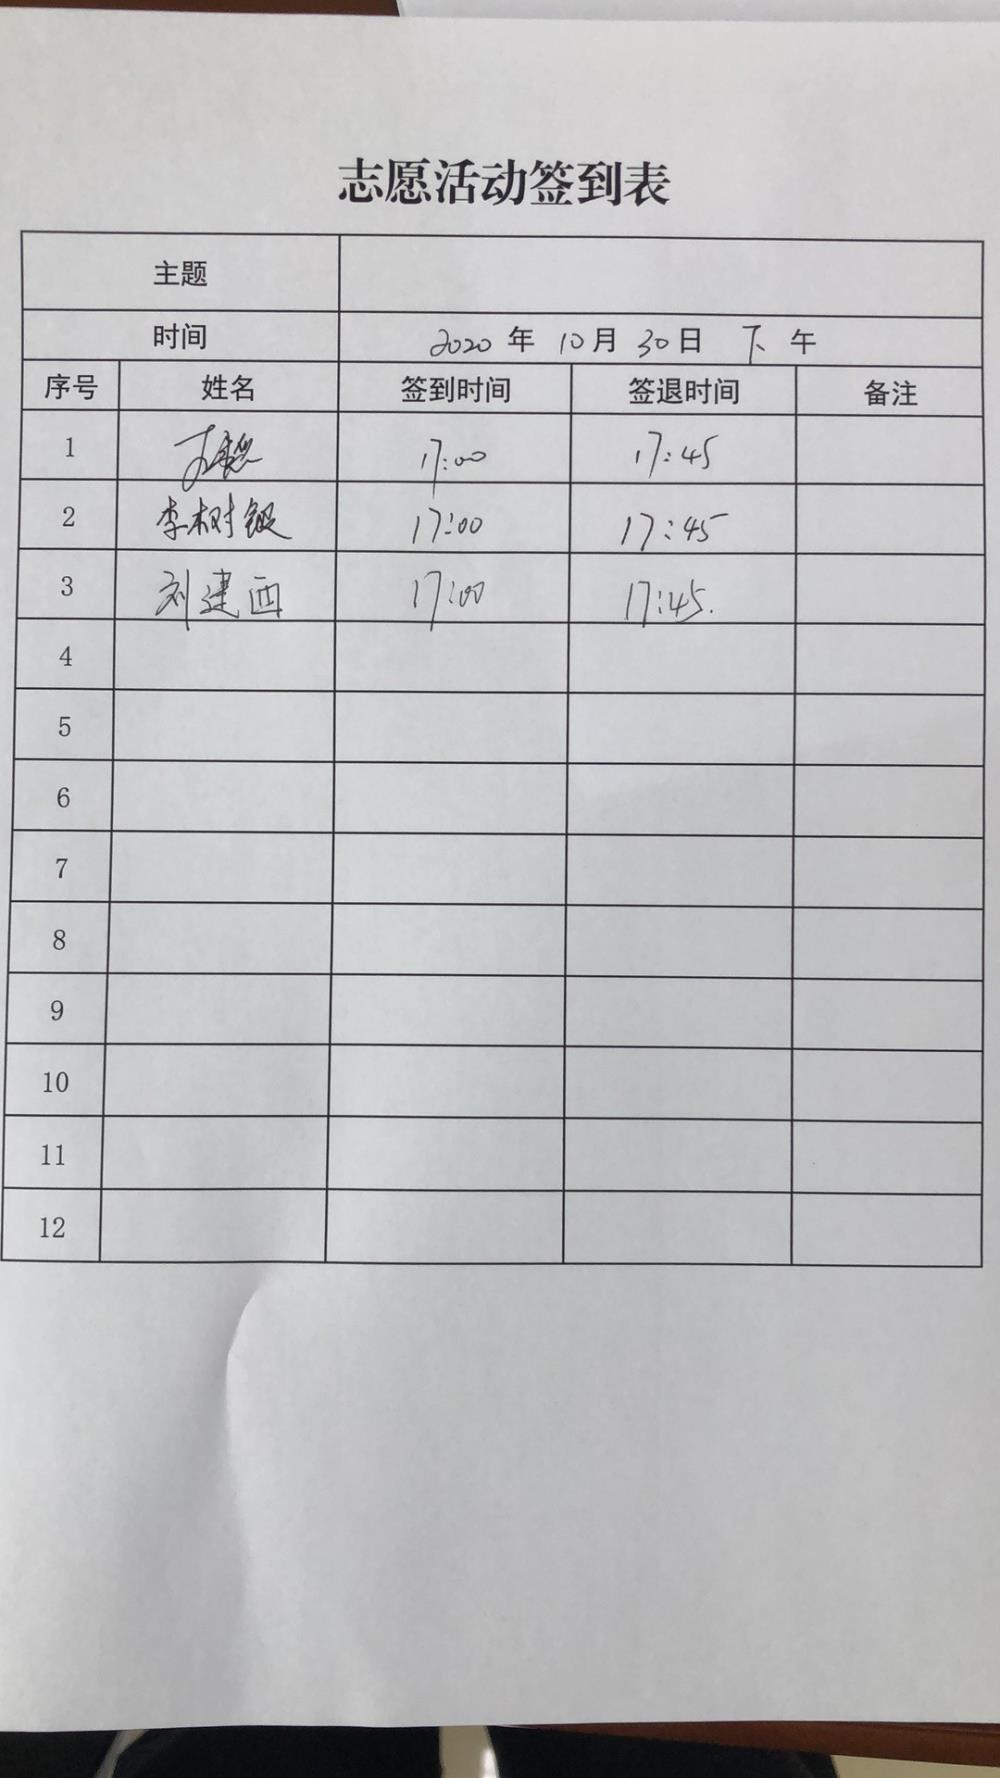 志愿活动签到表
主题
时间 2020 年 10 月 30 日 下 午
序号 姓名 签到时间 签退时间 备注
1 17:00 17:45
2 李树银 17:00 17:45
3 刘建西 17:00 17:45.
4
5
6
7
8
9
10
11
12